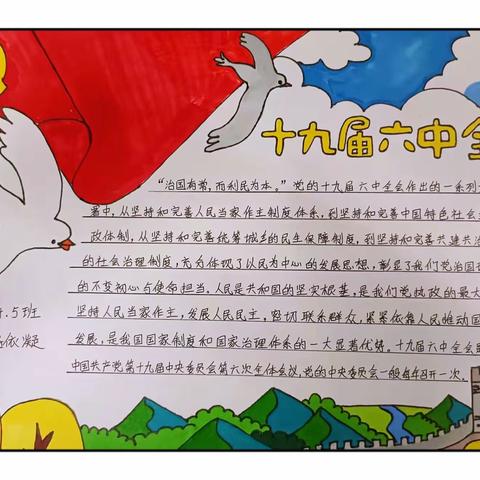 十九届六中全
“治国有常，而利民为本。”党的十九届六中全会作出的一系列
署中，从坚持和完善人民当家作主制度体系，到坚持和完善中国特色社会
政体制，从坚持和完善统筹城乡的民生保障制度，到坚持和完善共建共
的社会治理制度，充分体现了以民为中心的发展思想，彰显了我们党治国
的不变初心与使命担当。人民是共和国的坚实根基，是我们党执政的最大
坚持人民当家作主，发展人民民主，密切联系群众，紧紧依靠人民推动国
发展，是我国国家制度和国家治理体系的一大显著优势。十九届六中全会
中国共产党第十九届中央委员会第六次全体会议，党的中央委员会一般每年召开一次。
5班
依凝